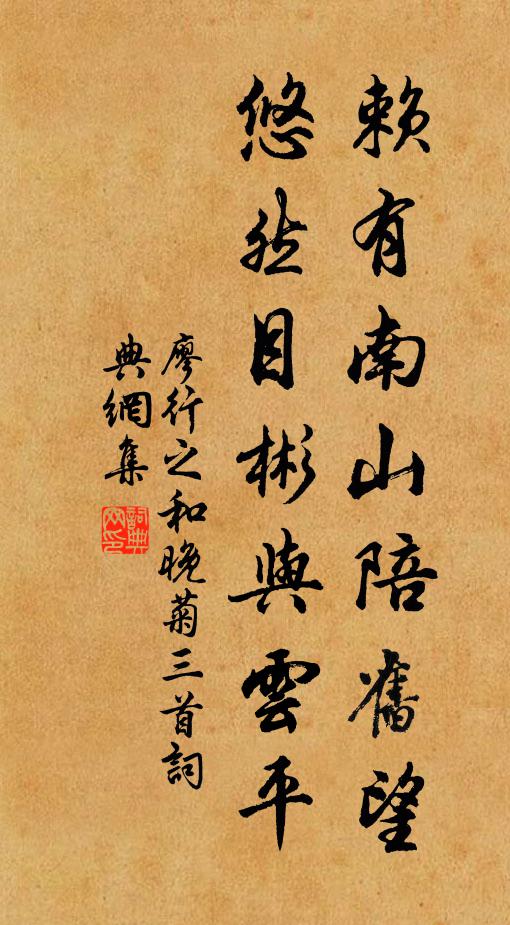 賴有南山陪舊望
悠然目彬與雲平
廖行之和晚菊三首詞
典網集
詞典網印